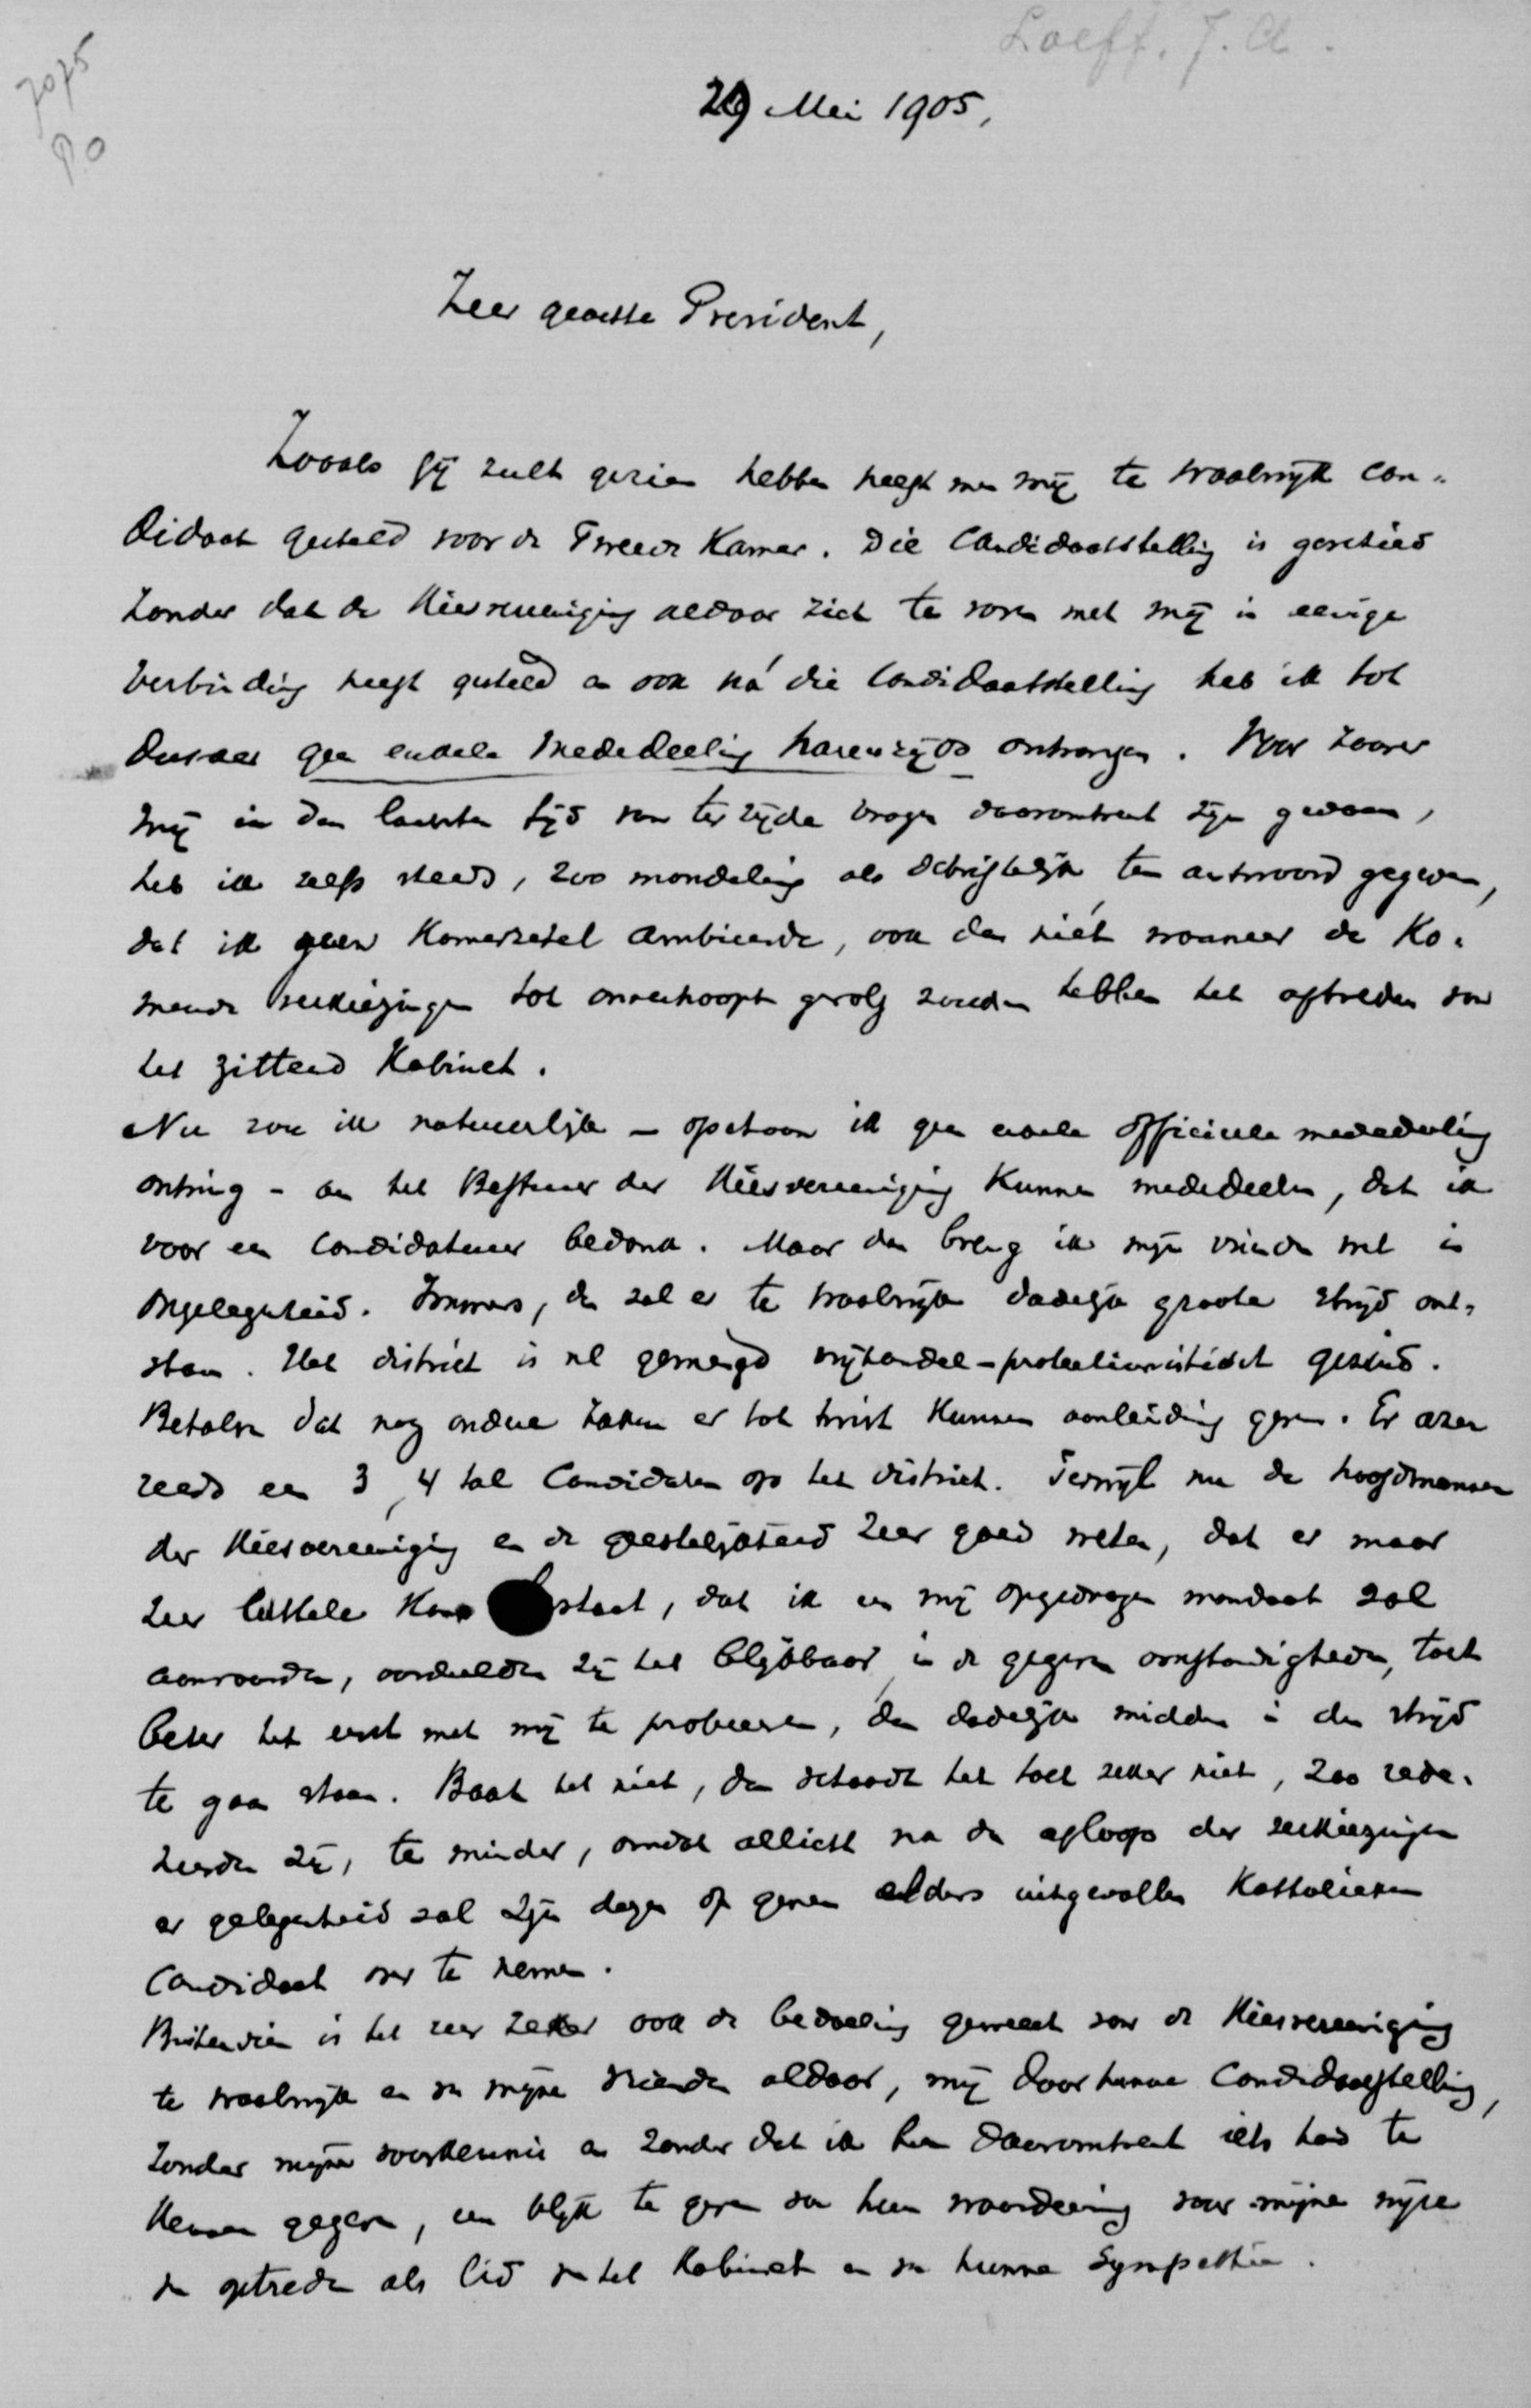 Loeff. J. A.
7075
P.O
29 Mei 1905,
Zeer geachte President,
Zooals gij zult gezien hebben heeft men mij te Waalwijk can-
didaat gesteld voor de Tweede Kamer. Die Candidaatstelling is geschied
zonder dat de Kiesvereeniging aldaar zich te voren met mij in eenige
verbinding heeft gesteld en ook ná die Candidaatstelling heb ik tot
dusver geen enkele mededeeling harerzijds ontvangen. Voor zoover
mij in den laatsten tijd van ter zijde vragen daaromtrent zijn gedaan,
heb ik zelfs steeds, zoo mondeling als schriftelijk ten antwoord gegeven,
dat ik geen Kamerzetel ambieerde, ook dan niét wanneer de Ko-
mende verkiezingen tot onverhoopt gevolg zouden hebben het aftreden van
het zittend Kabinet.
Nu zou ik natuurlijk - ofschoon ik geen enkele officieele mededeeling
ontving - aan het Bestuur der Kiesvereeniging Kunnen mededeelen, dat ik
voor een Candidatuur bedank. Maar dan breng ik mijn vrienden wel in
ongelegenheid. Immers, dan zal er te Waalwijk dadelijk groote strijd ont-
staan. Het district is nl gemengd vrijhandel-protectionistisch gezind.
Behalve dat nog andere zaken er tot twist Kunnen aanleiding geven. Er azen
reeds een 3, 4 tal Candidaten op het district. Terwijl nu de hoofdmannen
der Kiesvereeniging en de geestelijkheid zeer goed weten, dat er maar
zeer luttele Kans bestaat, dat ik een mij opgedragen mandaat zal
aanvaarden, oordeelden zij het blijkbaar, in de gegeven omstandigheden, toch
beter het eerst met mij te probeeren, dan dadelijk midden in den strijd
te gaan staan. Baat het niet, dan schaadt het toch zeker niet, zoo rede-
neerden zij, te minder, omdat allicht na den afloop der verkiezingen
er gelegenheid zal zijn dezen of genen elders uitgevallen Katholieken
Candidaat over te nemen.
Buitendien is het zeer zeker ook de bedoeling geweest van de Kiesvereeniging
te Waalwijk en van mijne vrienden aldaar, mij door hunne Candidaatstelling,
zonder mijne voorkennis en zonder dat ik hen daaromtrent iets had te
Kennen gegeven, een blijk te geven van hun waardeering voor mijne wijze
van optreden als lid van het Kabinet en van hunne Sympathie.